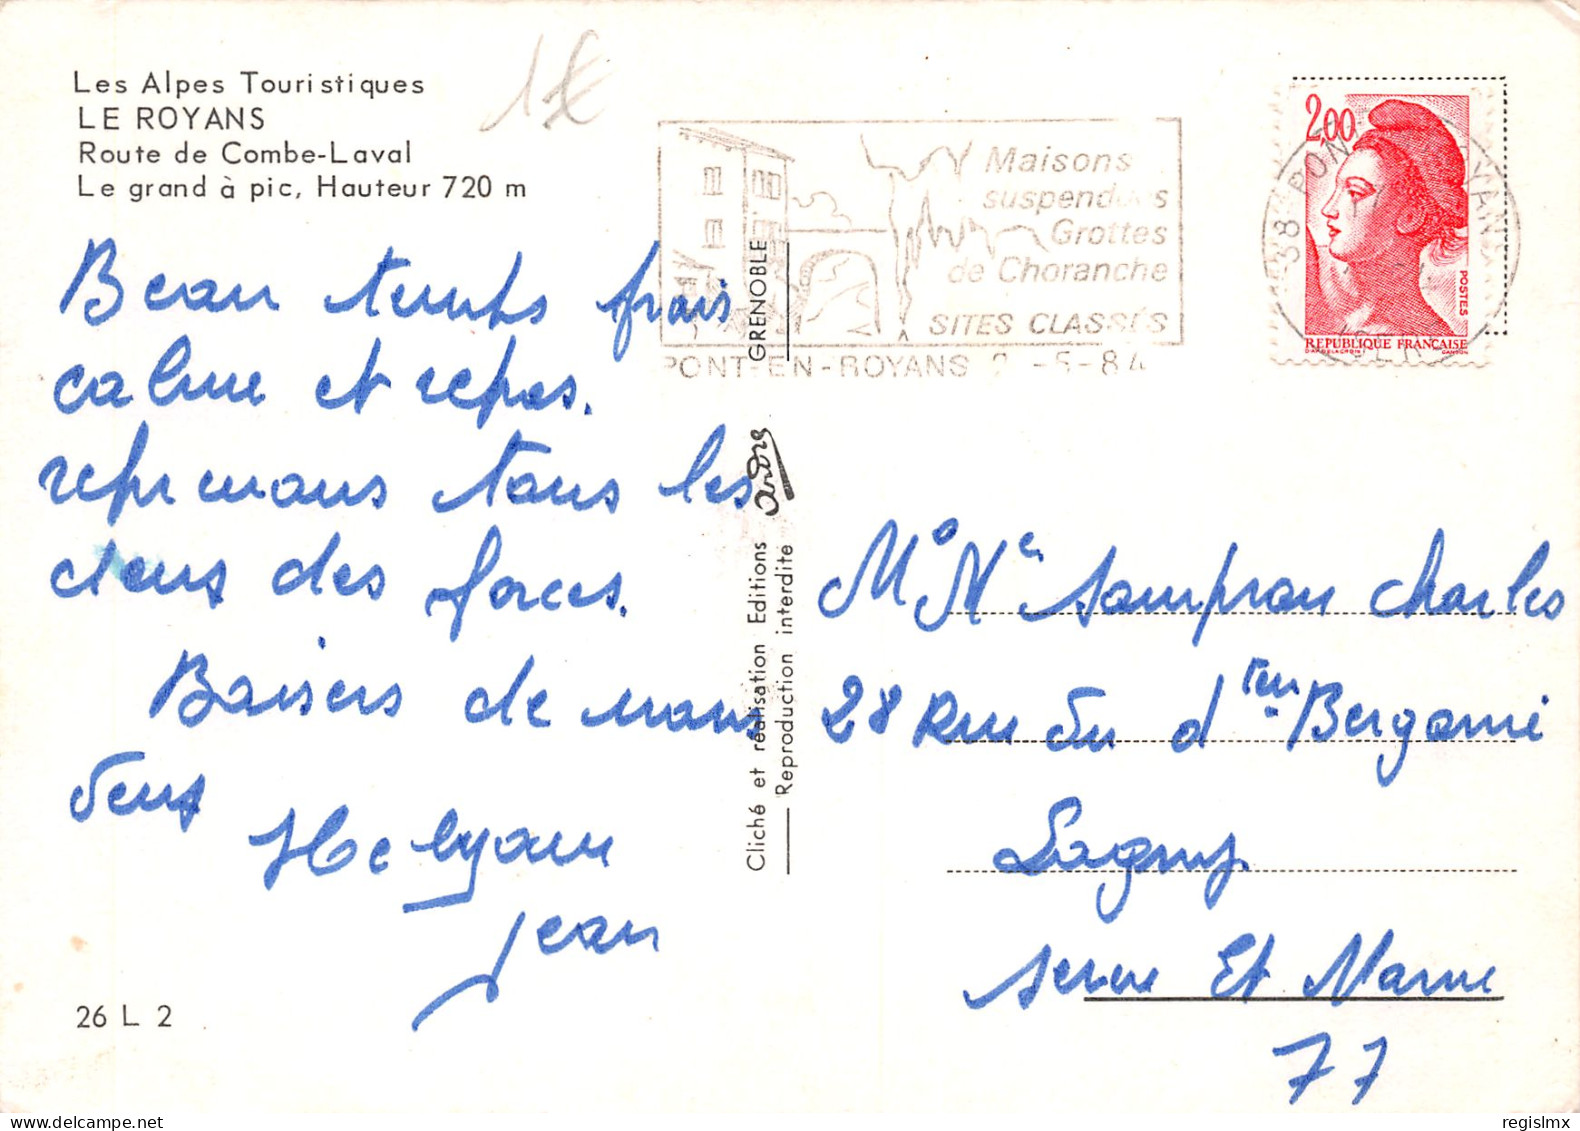 Les Alpes Touristiques
LE ROYANS
Route de Combe-Laval
Le grand à pic, Hauteur 720 m
1€
Beau temps frais
calme et repos.
reprenons tous les
deux des forces.
Baisers de nous
deux
Jean
26 L 2
GRENOBLE
André
Cliché et réalisation Editions
Reproduction interdite
Maisons
suspendues
Grottes
de Choranche
SITES CLASSÉS
PONT-EN-ROYANS 2 -5-84
38 PONT
2,00
POSTES
REPUBLIQUE FRANÇAISE
Charles
28 Rue du Bergami
Lagny
Seine Et Marne
77
regislmx